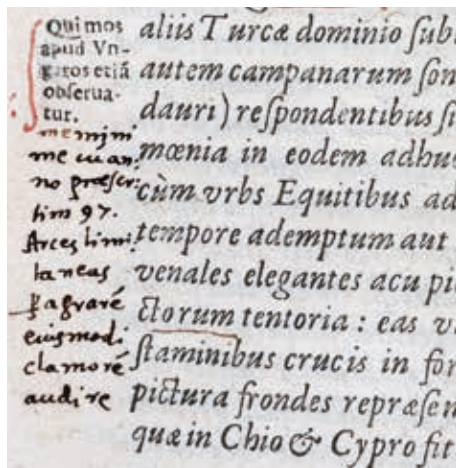 Qui mos
apud Vn-
garos etiã
obſerua-
tur.
memini
me
no
tim 97.
Arces limi
taneas
ꝑagraré
eiusmodi
clamoré
audire
aliis Turcæ dominio ſub
autem campanarum ſon
dauri) reſpondentibus ſi
mœnia in eodem adhu
cùm vrbs Equitibus ad
tempore ademptum aut
venales elegantes acu pi
ctorum tentoria : eas v
ſtaminibus crucis in for
pictura frondes repræſen
quæ in Chio & Cypro fit